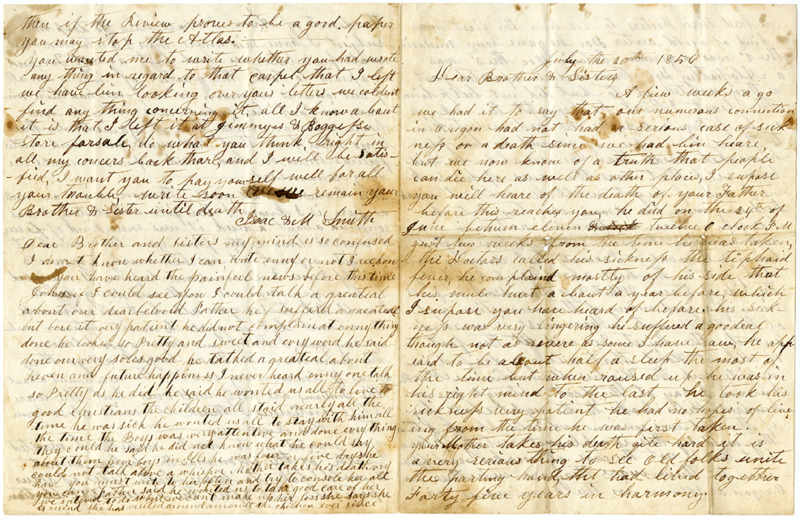 then if the Review proves to be a good paper
you may stop the Atlas.
you wanted me to write whether you had wrote
any thing in regard to that carpet that I left
we have bin looking over your letters we coldent
find any thing concerning it, all I know a bout
it is that I left it at
store forsale do what you think right in
all my concers back thar, and I will be satis-
fied I want you to pay yourself well for all
your trouble, write soon remain your
Brother & Sister until death
Isaac & M Smith
Dear Brother and sisters my mind is so confused
I don't know whether I can write enny or not I reckon
you have heard the painful news before this time
John if I could see you I could talk a greatieal
about our dear beloved Father he suffard a greatieal
but bore it very patient he did not complain at enny thing
done he looked so Pretty and sweet and evry word he said
done our very soles good he talked a greateal about
heven and future happiness I never heard enny one talk
so Pretty as he did he said he wonted us all to live
good cristians the children all staid nearly all the
time he was sick he wonted us all to stay with him all
the time the Boys was very attentive and done evry thing
they could he said he did not know what he could say
about them poor boys the last four or five days he
could not talk above a whisper mother takes his death very
hard you must write to her often and try to console her all
you can Father said he wonted us to take good care of her
we intend to do so but we cant make up her loss she says she
resind she has visited around amonst the children ever since
July the 20th 1856
Dear Brother & Sisters
A few weeks a go
we had it to say that our numerous connention
in Oregon had not had a serious case of sick
ness or a death since we had bin heare,
but we now know of a truth that people
can die here as well as other place, I supose
you will heare of the death of your Father
before this reaches you, he died on the 24th of
June betwen eleven twelve O clock P.M
just two weeks from the time he was taken,
The Doctors called his sickness the tiphoid
fever he complaind mostly of his side that
his mule hurt a baut a year before, which
I supose you have heard of before his sick
ness was very lingering he suffered a goodeal
though not as severe as some I have saw, he app
eard to be about half a sleep the most of
the time but when roused up he was in
his right mind to the last, he took his
sickness very patient he had no hopes of live
ing from the time he was first taken.
your Mother takes his death qite hard it is
a very serious thing to see Old folks
the parting hand, tht had lived together
Forty five years in harmony.